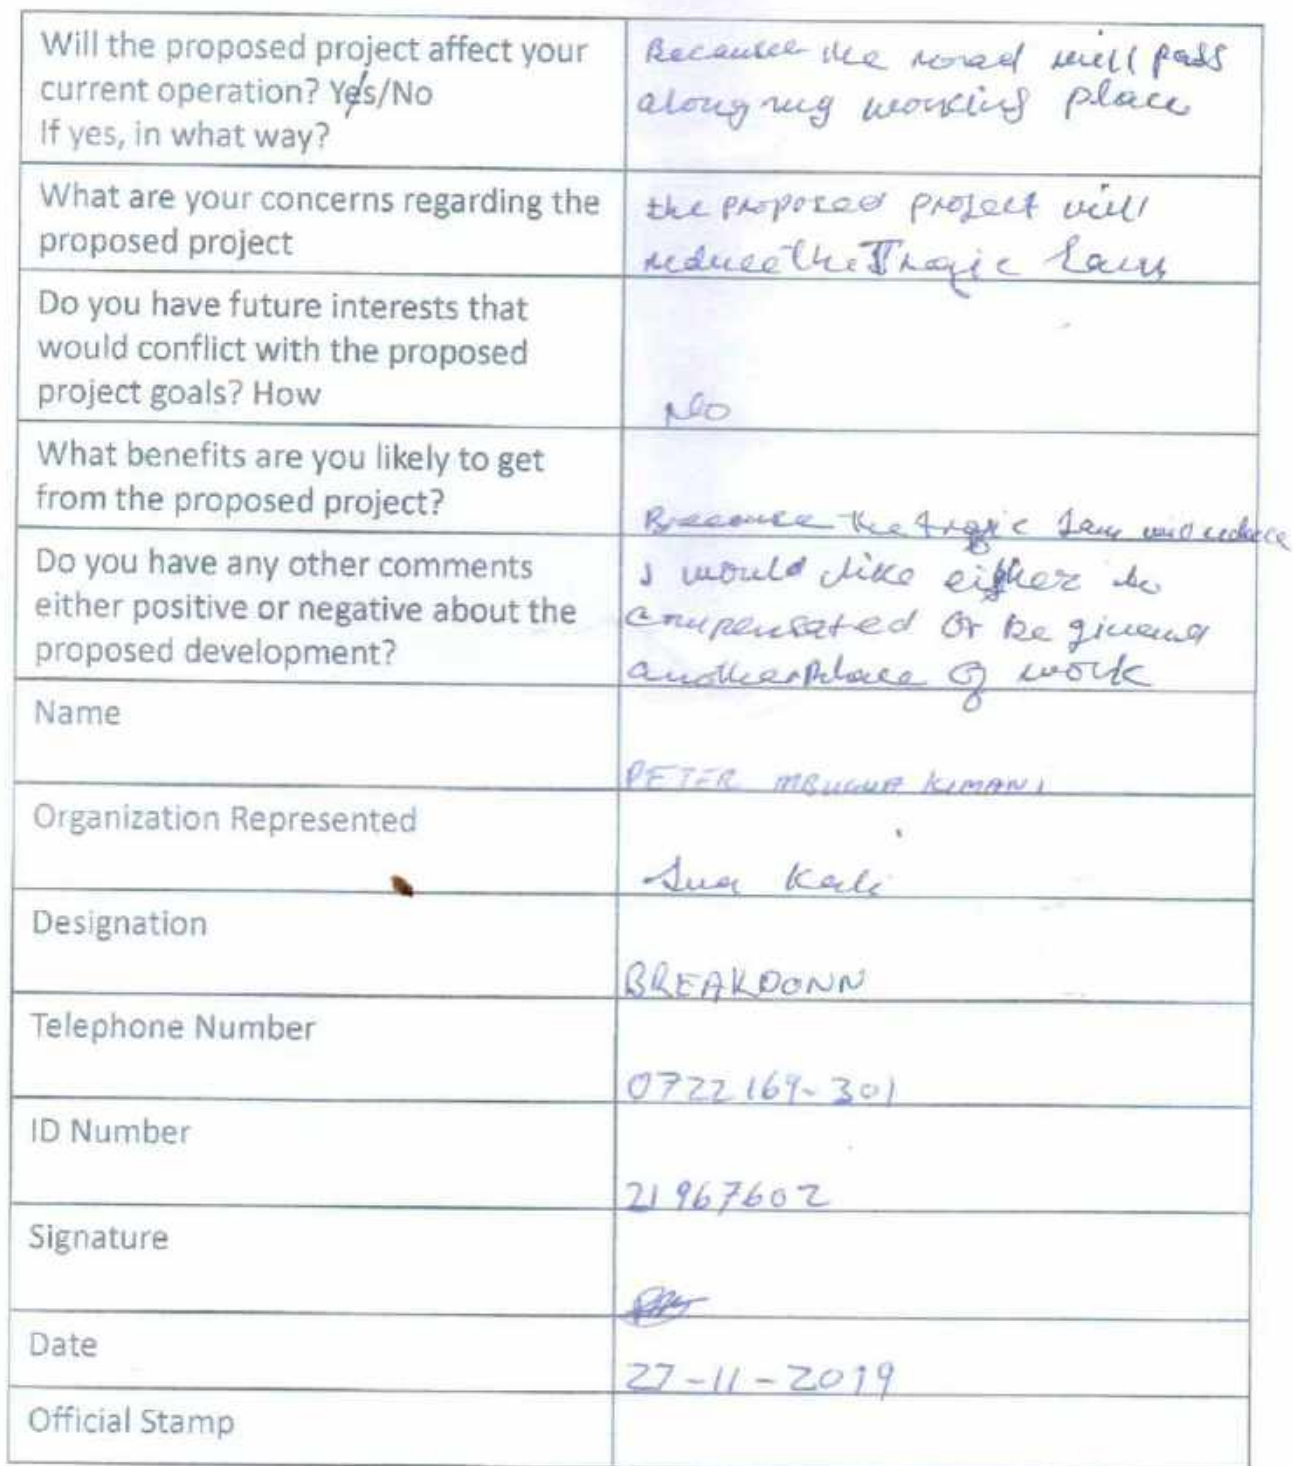 Will the proposed project affect your
current operation? Yes/No
If yes, in what way?
Because the road will pass
along my working place
What are your concerns regarding the
proposed project
the proposed project will
reduce the Trafic Jam
Do you have future interests that
would conflict with the proposed
project goals? How
No
What benefits are you likely to get
from the proposed project?
Because the trafic Jam will reduce
Do you have any other comments
either positive or negative about the
proposed development?
I would like either be
compensated Or be given a
another place of work
Name
PETER MBUGUA KIMANI
Organization Represented
Jua Kali
Designation
BREAKDONN
Telephone Number
0722169-301
ID Number
21967602
Signature
Date
27-11-2019
Official Stamp